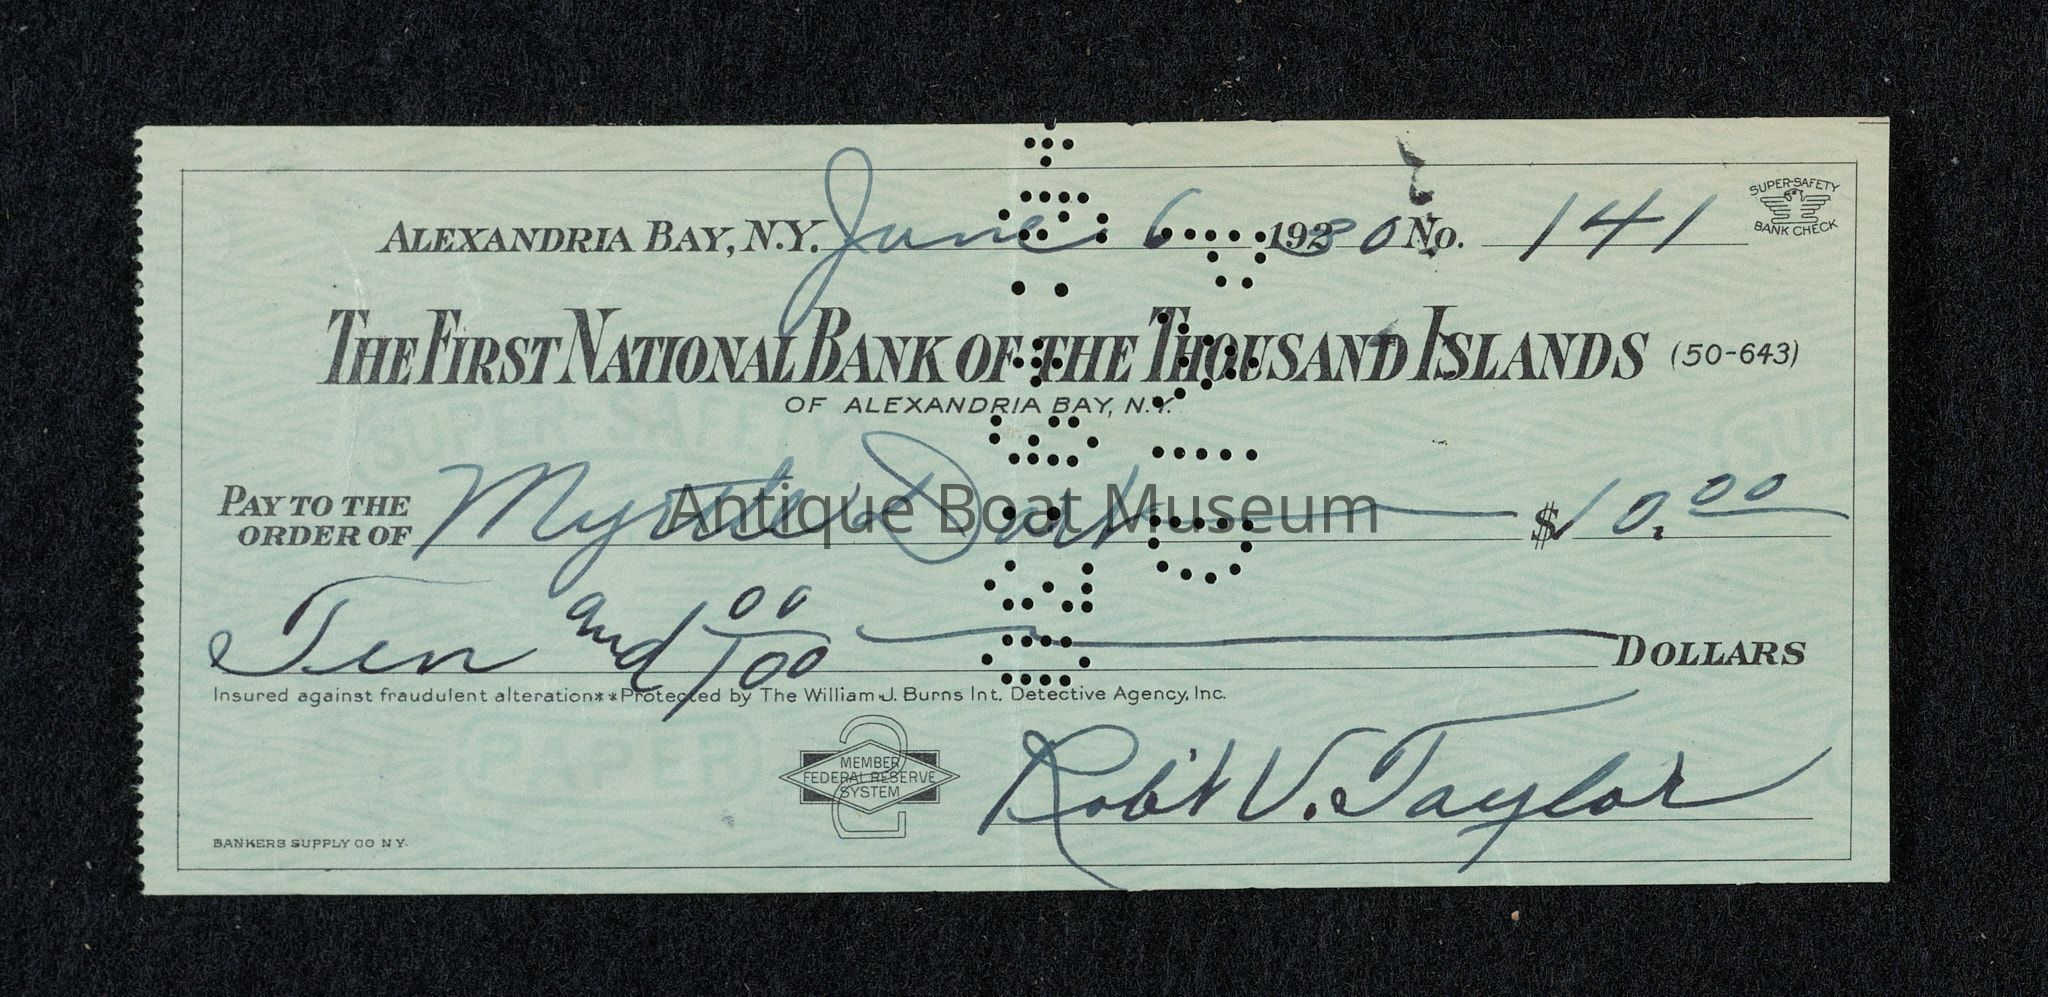 SUPER-SAFETY
BANK CHECK
ALEXANDRIA BAY, N.Y. June 6 1930 No. 141
THE FIRST NATIONAL BANK OF THE THOUSAND ISLANDS (50-643)
OF ALEXANDRIA BAY, N.Y.
SUPER SAFETY
PAY TO THE
ORDER OF Myrtle $10.00
Antique Boat Museum
Ten and 00/100 DOLLARS
Insured against fraudulent alteration**Protected by The William J. Burns Int. Detective Agency, Inc.
PAPER
2
MEMBER
FEDERAL RESERVE
SYSTEM
Rob't V. Taylor
BANKERS SUPPLY CO N.Y.